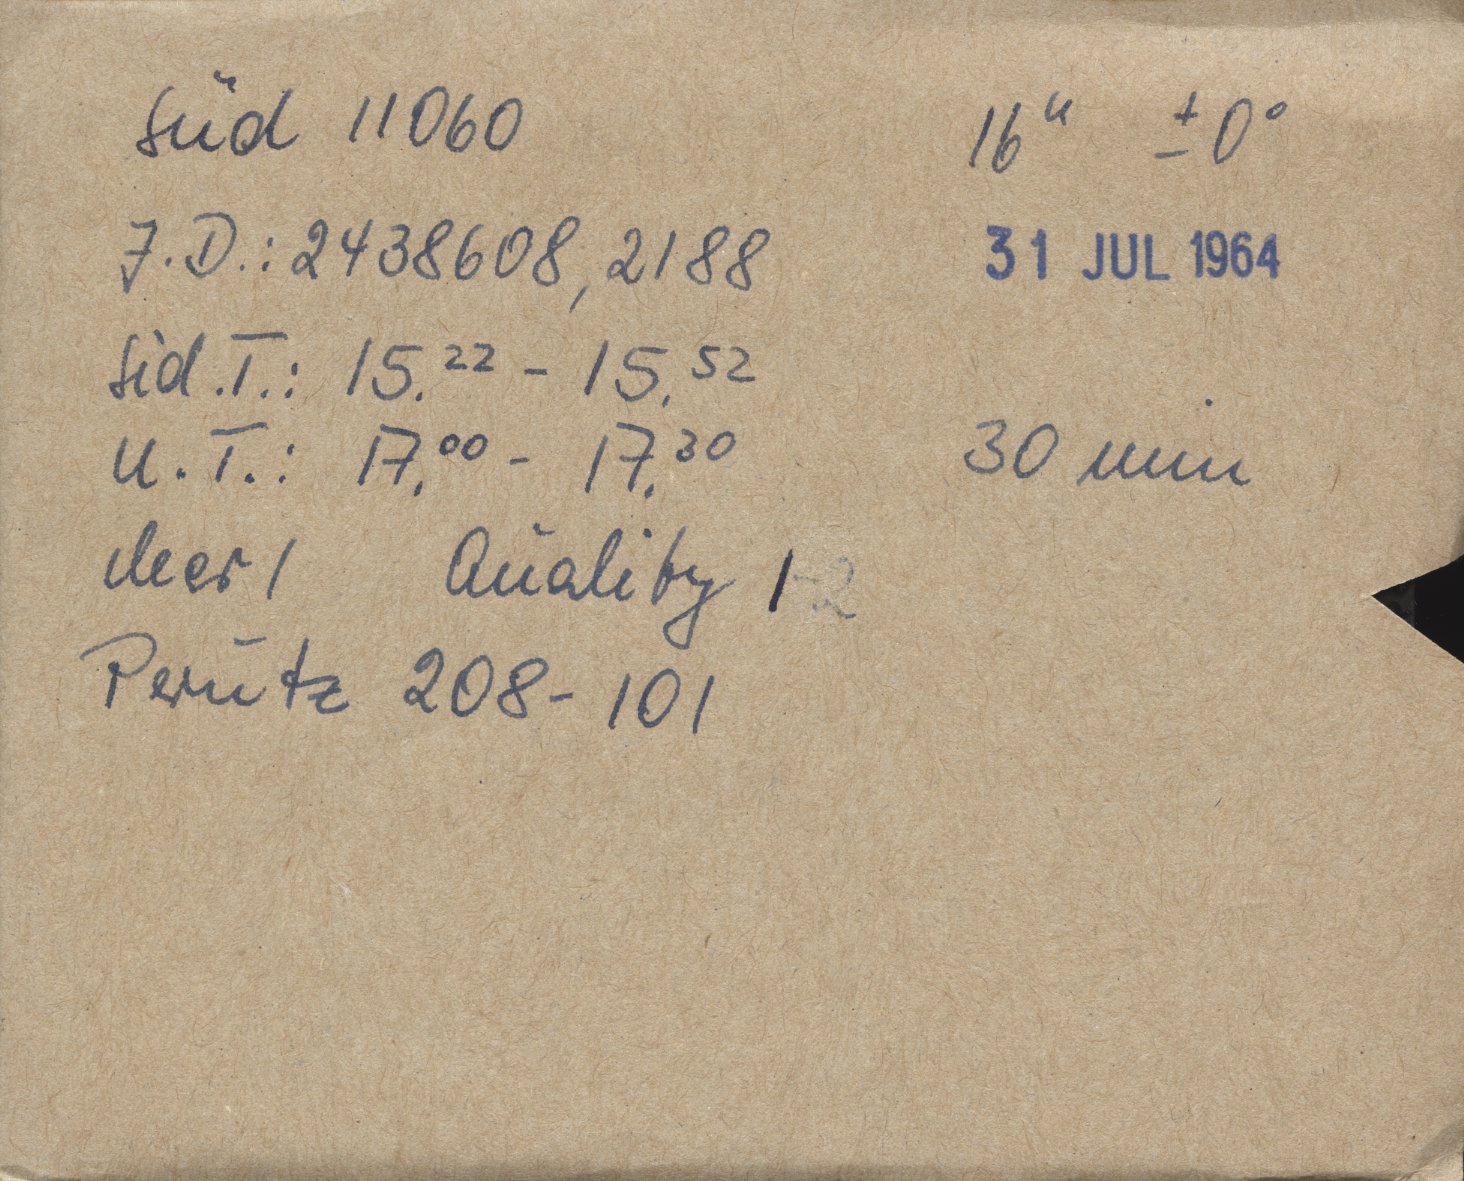 Süd 11060 16ʰ ± 0°
J.D.: 2438608,2188 31 JUL 1964
Sid.T.: 15.²² - 15.⁵²
U.T.: 17.⁰⁰ - 17.³⁰ 30 min
Quality 1-2
Perutz 208-101